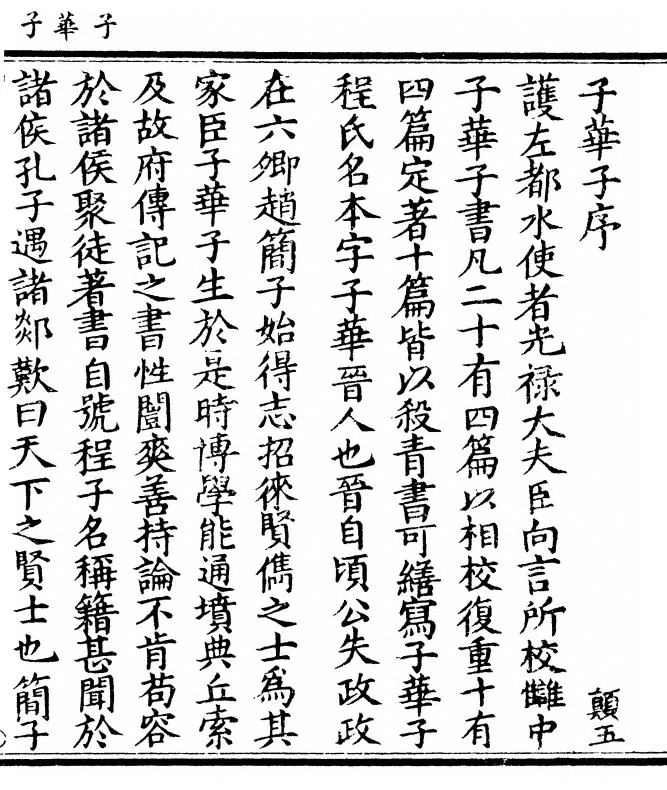 子華子
子華子序
顛五
護左都水使者光祿大夫臣向言所校讎中
子華子書凡二十有四篇以相校復重十有
四篇定著十篇皆以殺青書可繕寫子華子
程氏名本字子華晉人也晉自頃公失政政
在六卿趙簡子始得志招徠賢儁之士為其
家臣子華子生於是時博學能通墳典丘索
及故府傳記之書性闓爽善持論不肯苟容
於諸侯聚徒著書自號程子名稱籍甚聞於
諸侯孔子遇諸郯歎曰天下之賢士也簡子